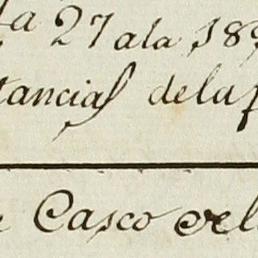 27 ala 189
tancias dela
Casco del